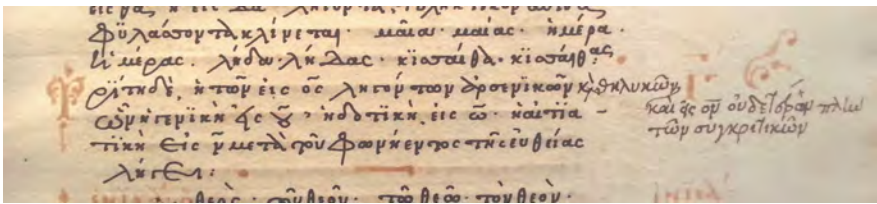 φυλάσσοντα κλίνεται· μαῖα· μαίας· ἡμέρα·
ἡμέρας. λήδα· λήδας· κισσαίθα· κισσαίθας
Τρίτη δὲ, ἡ τῶν εἰς ος ληγόντων ἀρσενικῶν κ̀ θηλυκῶν
ὧν ἡ γενικὴ εἰς ου· ἡ δοτικὴ, εἰς ω· ἡ αἰτια
τικὴ εἰς ν μετὰ τοῦ φωνήεντος τῆς εὐθείας
λήγει:
θεὸς· τοῦ θεοῦ· τῶ θεῶ· τὸν θεὸν·
καὶ εἰς ον οὐδετέρων πλὴν
τῶν συγκριτικῶν